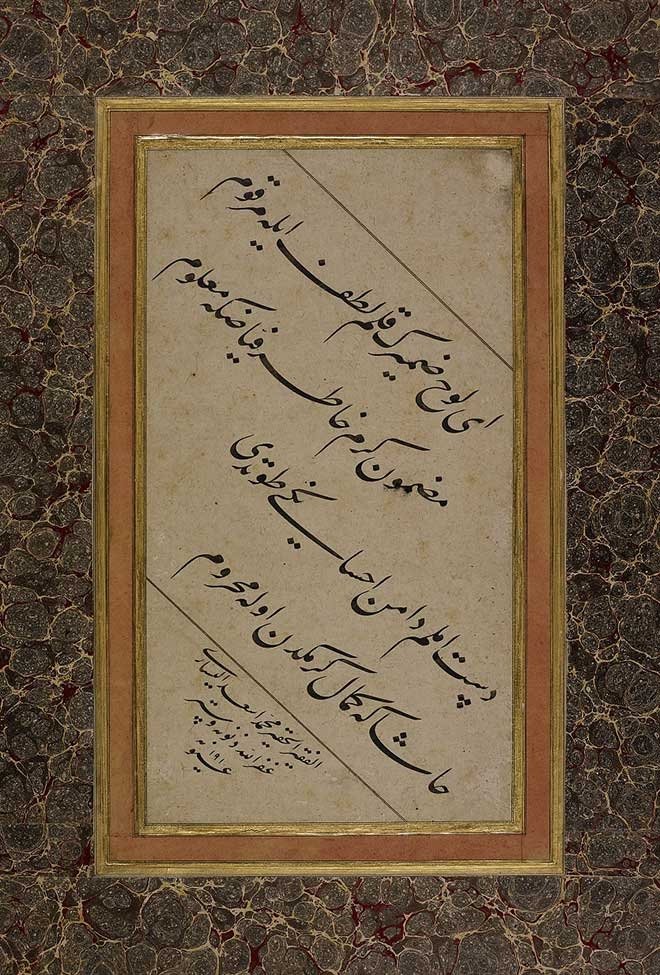 ای لوح ضمیرک قلم لطف ایله مرقوم
مضمون کرم خاطر فیاضکه معلوم
دست املم دامن احسانکی طوتدی
حاشا که کمال کرمکدن اوله محروم
الفقیر الحقیر محمد اسعد الیساری
غفر الله ذنوبه وستر
عیوبه